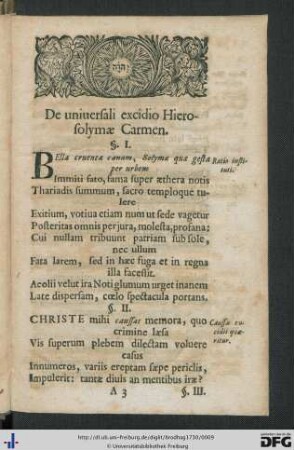 יהוה
De universali excidio Hiero-
solymæ Carmen.
§. I.
BElla cruenta canam, Solymæ quæ gesta
per urbem
Ratio insti-
tuti.
Immiti fato, fama super æthera notis
Thariadis summum, sacro temploque tu-
lere
Exitium, votiua etiam num ut sede vagetur
Posteritas omnis perjura, molesta, profana;
Cui nullam tribuunt patriam sub sole,
nec ullum
Fata larem, sed in hæc fuga et in regna
illa facessit.
Aeolii velut ira Noti glumum urget inanem
Late dispersam, cœlo spectacula portans.
§. II.
CHRISTE mihi caussas memora, quo
crimine læsa
Caussa ex-
cidii quæ-
ritur.
Vis superum plebem dilectam voluere
casus
Innumeros, variis ereptam sæpe periclis,
Impulerit: tantæ diuis an mentibus iræ?
A 3
§. III.
http://dl.ub.uni-freiburg.de/diglit/brodhag1730/0009
© Universitätsbibliothek Freiburg
Gefördert durch die
DFG